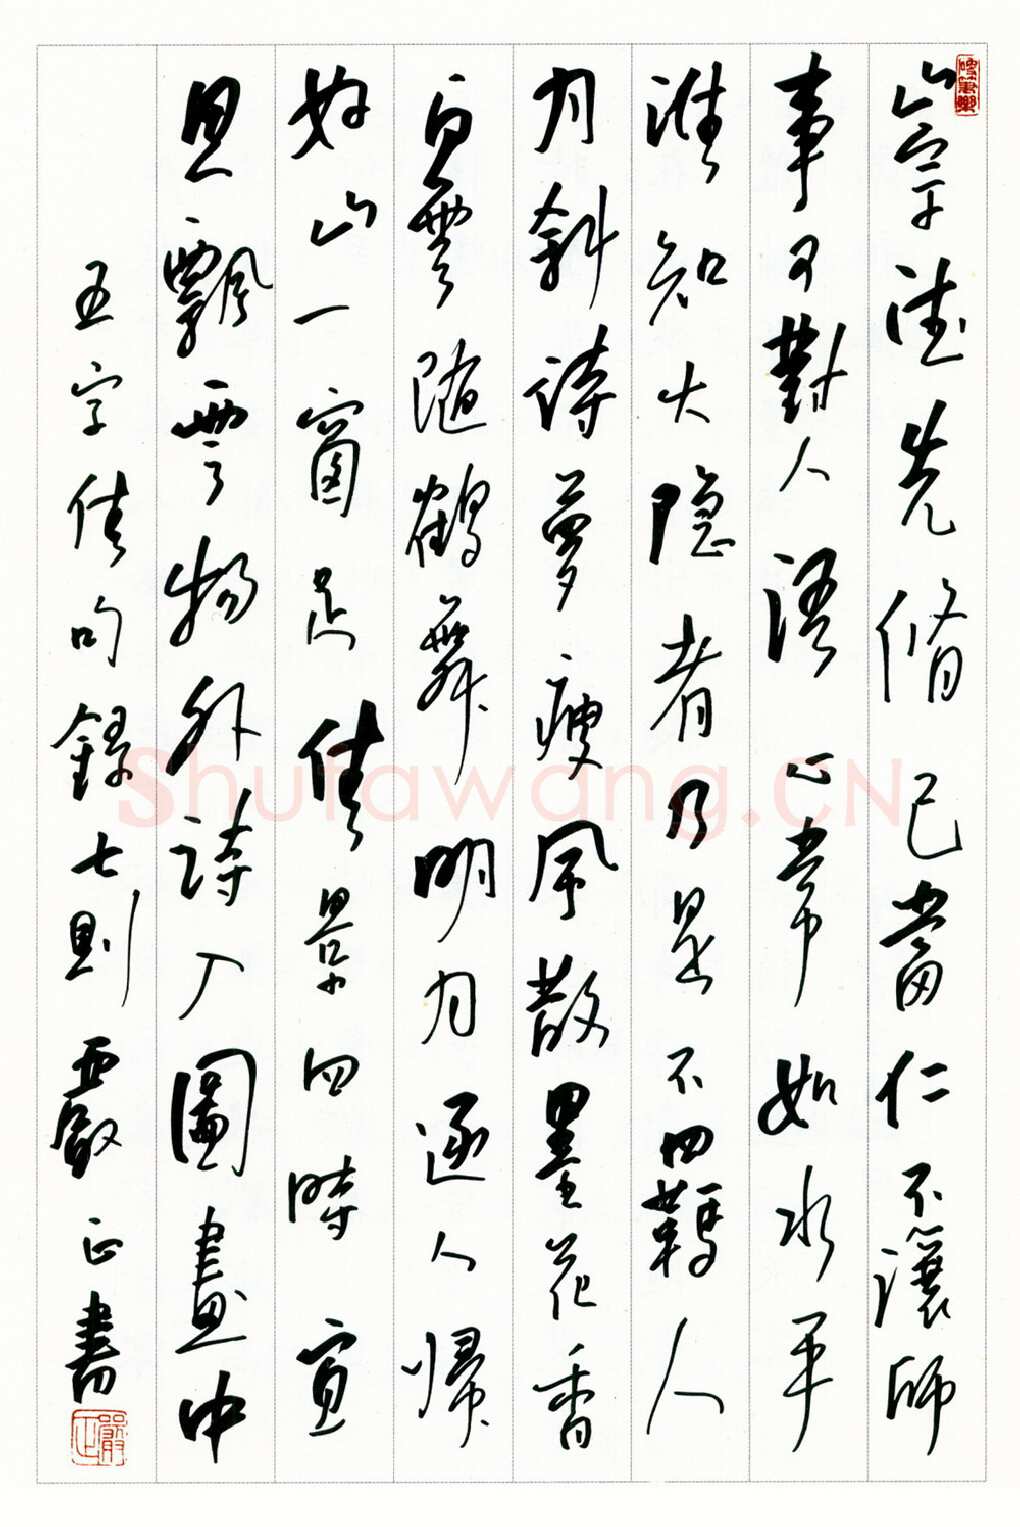 崇德先脩己當仁不讓師
事可對人語心常如水平
誰知大隐者乃是不羈人
月斜詩夢瘦風散墨花香
白雲随鶴舞明月逐人歸
好山一窗足佳景四時宜
思飄雲物外詩入圖畫中
五字佳句錄七則嚴正書
嚴正
Shufawang.CN